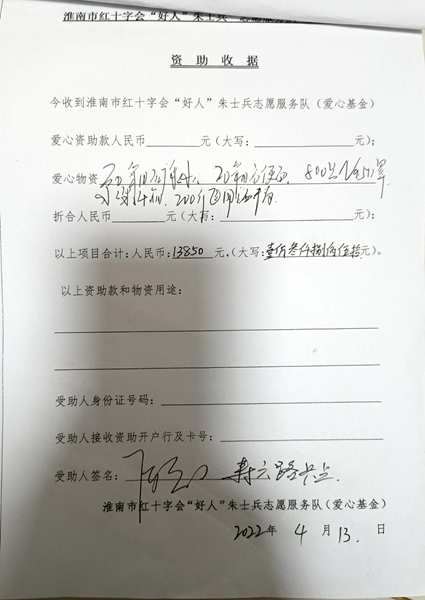 淮南市红十字会“好人”朱士兵
资助收据
今收到淮南市红十字会“好人”朱士兵志愿服务队（爱心基金）
爱心资助款人民币______元（大写：______元）；
爱心物资 20箱方便面、800只
折合人民币______元（大写：______元）；
以上项目合计：人民币：13850元，（大写：壹万叁仟捌佰伍拾元）。
以上资助款和物资用途：
受助人身份证号码：
受助人接收资助开户行及卡号：
受助人签名：
淮南市红十字会“好人”朱士兵志愿服务队（爱心基金）
2022年 4 月 13 日